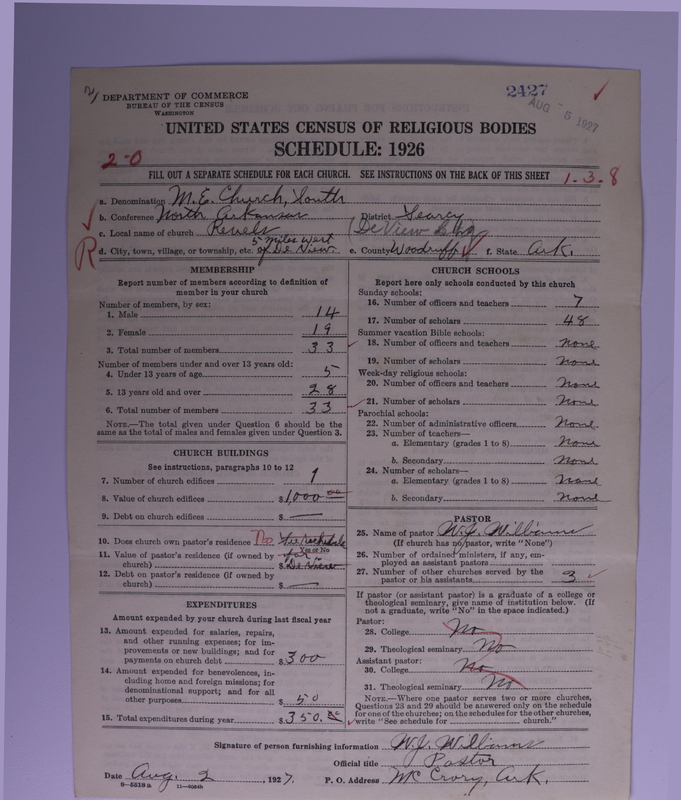 2427
AUG - 5 1927
DEPARTMENT OF COMMERCE
BUREAU OF THE CENSUS
WASHINGTON
UNITED STATES CENSUS OF RELIGIOUS BODIES
SCHEDULE: 1926
2-0
FILL OUT A SEPARATE SCHEDULE FOR EACH CHURCH. SEE INSTRUCTIONS ON THE BACK OF THIS SHEET
1-3-8
a. Denomination M.E. Church, South
b. Conference North Arkansas District Searcy
c. Local name of church Revels (De View Chg)
R
d. City, town, village, or township, etc. 5 Miles West of De View e. County Woodruff f. State Ark.
MEMBERSHIP
Report number of members according to definition of
member in your church
Number of members, by sex:
1. Male 14
2. Female 19
3. Total number of members 33
Number of members under and over 13 years old:
4. Under 13 years of age 5
5. 13 years old and over 28
6. Total number of members 33
NOTE.—The total given under Question 6 should be the
same as the total of males and females given under Question 3.
CHURCH BUILDINGS
See instructions, paragraphs 10 to 12
7. Number of church edifices 1
8. Value of church edifices $1,000 00
9. Debt on church edifices $ —
10. Does church own pastor's residence No See schedule
Yes or No
11. Value of pastor's residence (if owned by for
church) $ De View
12. Debt on pastor's residence (if owned by
church) $ —
EXPENDITURES
Amount expended by your church during last fiscal year
13. Amount expended for salaries, repairs,
and other running expenses; for im-
provements or new buildings; and for
payments on church debt $ 300
14. Amount expended for benevolences, in-
cluding home and foreign missions; for
denominational support; and for all
other purposes $ 50
15. Total expenditures during year $ 350.00
CHURCH SCHOOLS
Report here only schools conducted by this church
Sunday schools:
16. Number of officers and teachers 7
17. Number of scholars 48
Summer vacation Bible schools:
18. Number of officers and teachers none
19. Number of scholars None
Week-day religious schools:
20. Number of officers and teachers None
21. Number of scholars None
Parochial schools:
22. Number of administrative officers None
23. Number of teachers—
a. Elementary (grades 1 to 8) None
b. Secondary None
24. Number of scholars—
a. Elementary (grades 1 to 8) None
b. Secondary None
PASTOR
25. Name of pastor W.J. Williams
(If church has no pastor, write "None")
26. Number of ordained ministers, if any, em-
ployed as assistant pastors
27. Number of other churches served by the
pastor or his assistants 3
If pastor (or assistant pastor) is a graduate of a college or
theological seminary, give name of institution below. (If
not a graduate, write "No" in the space indicated.)
Pastor:
28. College No
29. Theological seminary No
Assistant pastor:
30. College No
31. Theological seminary No
NOTE.—Where one pastor serves two or more churches,
Questions 28 and 29 should be answered only on the schedule
for one of the churches; on the schedules for the other churches,
write "See schedule for church."
Signature of person furnishing information W.J. Williams
Official title Pastor
Date Aug. 2, 1927. P. O. Address Mc Crory, Ark.